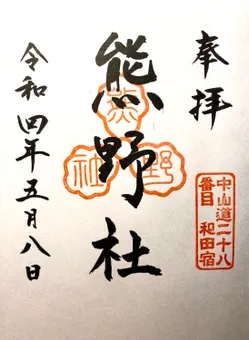 奉拝
中山道二十八
番目 和田宿
熊野社
熊
野
社
令和四年五月八日